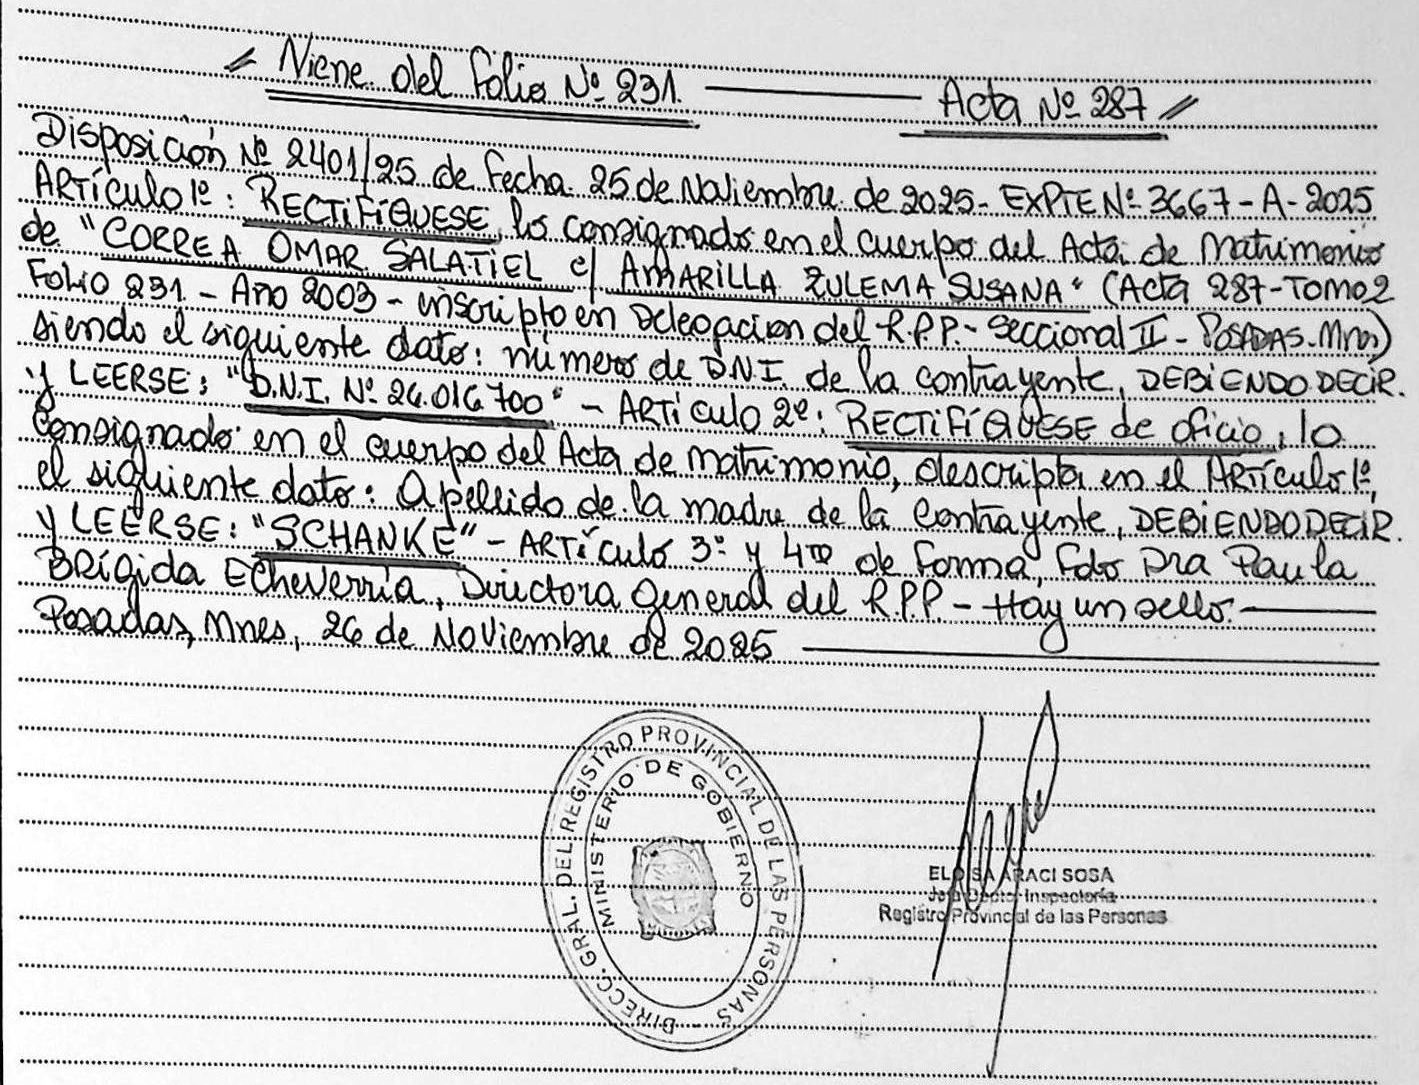 // Viene del folio Nº 231. Acta Nº 287 //
Disposición Nº 2401/25 de fecha 25 de Noviembre de 2025 - EXPTE Nº 3667 - A - 2025
ARTÍCULO 1º: RECTIFÍQUESE, lo consignado en el cuerpo del Acta de Matrimonio
de "CORREA OMAR SALATIEL c/ AMARILLA ZULEMA SUSANA" (Acta 287 - TOMO 2
FOLIO 231 - Año 2003 - inscripto en Delegacion del R.P.P. - Seccional II - POSADAS - Mnes)
siendo el siguiente dato: número de D.N.I. de la contrayente, DEBIENDO DECIR
y LEERSE: "D.N.I. Nº 24.016.700" - ARTÍculo 2º: RECTIFÍQUESE de oficio, lo
consignado en el cuerpo del Acta de matrimonio, descripta en el ARTículo 1º,
el siguiente dato: Apellido de la madre de la contrayente, DEBIENDO DECIR
y LEERSE: "SCHANKE" - ARTÍculo 3º y 4to de forma, Fdo Dra Paula
Brígida Echeverría, Directora General del R.P.P. - Hay un sello.
Posadas, Mnes, 26 de Noviembre de 2025
DIRECC. GRAL. DEL REGISTRO PROVINCIAL DE LAS PERSONAS
MINISTERIO DE GOBIERNO
ELOISA ARACI SOSA
Jefa Depto. Inspectoría
Registro Provincial de las Personas